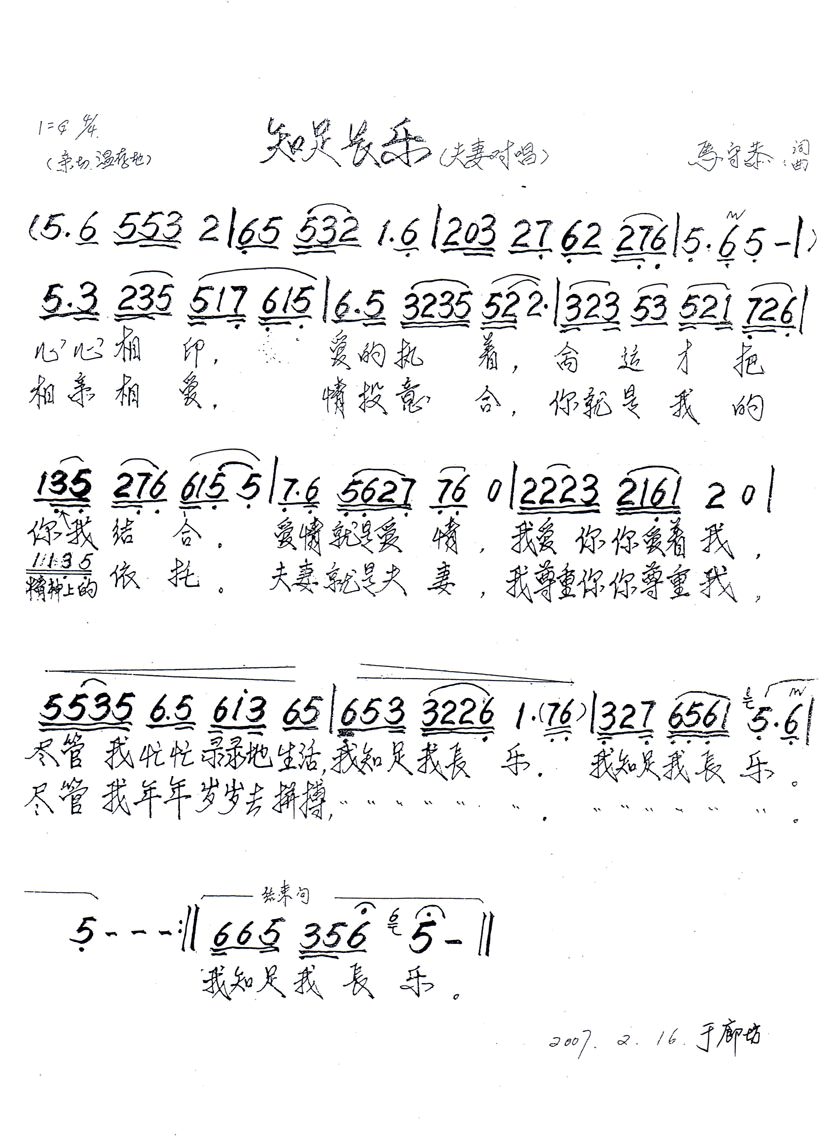 1= 4/4
知足長乐(夫妻对唱)
(亲切 温存地)
馬守恭 词曲
(5.6 553 2|65 532 1.6|203 27 62 276|5.6 5 -|)
5.3 235 517 615|6.5 3235 522 2.|323 53 521 726|
心心相印, 爱的执着, 命运才把
相亲相爱, 情投意合, 你就是我的
135 276 615 5|7.6 5627 76 0|2223 2161 2 0|
你我结合。爱情就是爱情,我爱你你爱着我,
1135
精神上的依托。夫妻就是夫妻,我尊重你你尊重我,
5535 6.5 613 65|653 3226 1.(76)|327 6561 5.6|
尽管我忙忙录录地生活,我知足我長乐. 我知足我長乐。
尽管我年年岁岁去拼搏, " " " " " " . " " " " " " 。
结束句
5 - - -:|| 665 356 5 - ||
我知足我長乐。
2007. 2. 16. 于廊坊